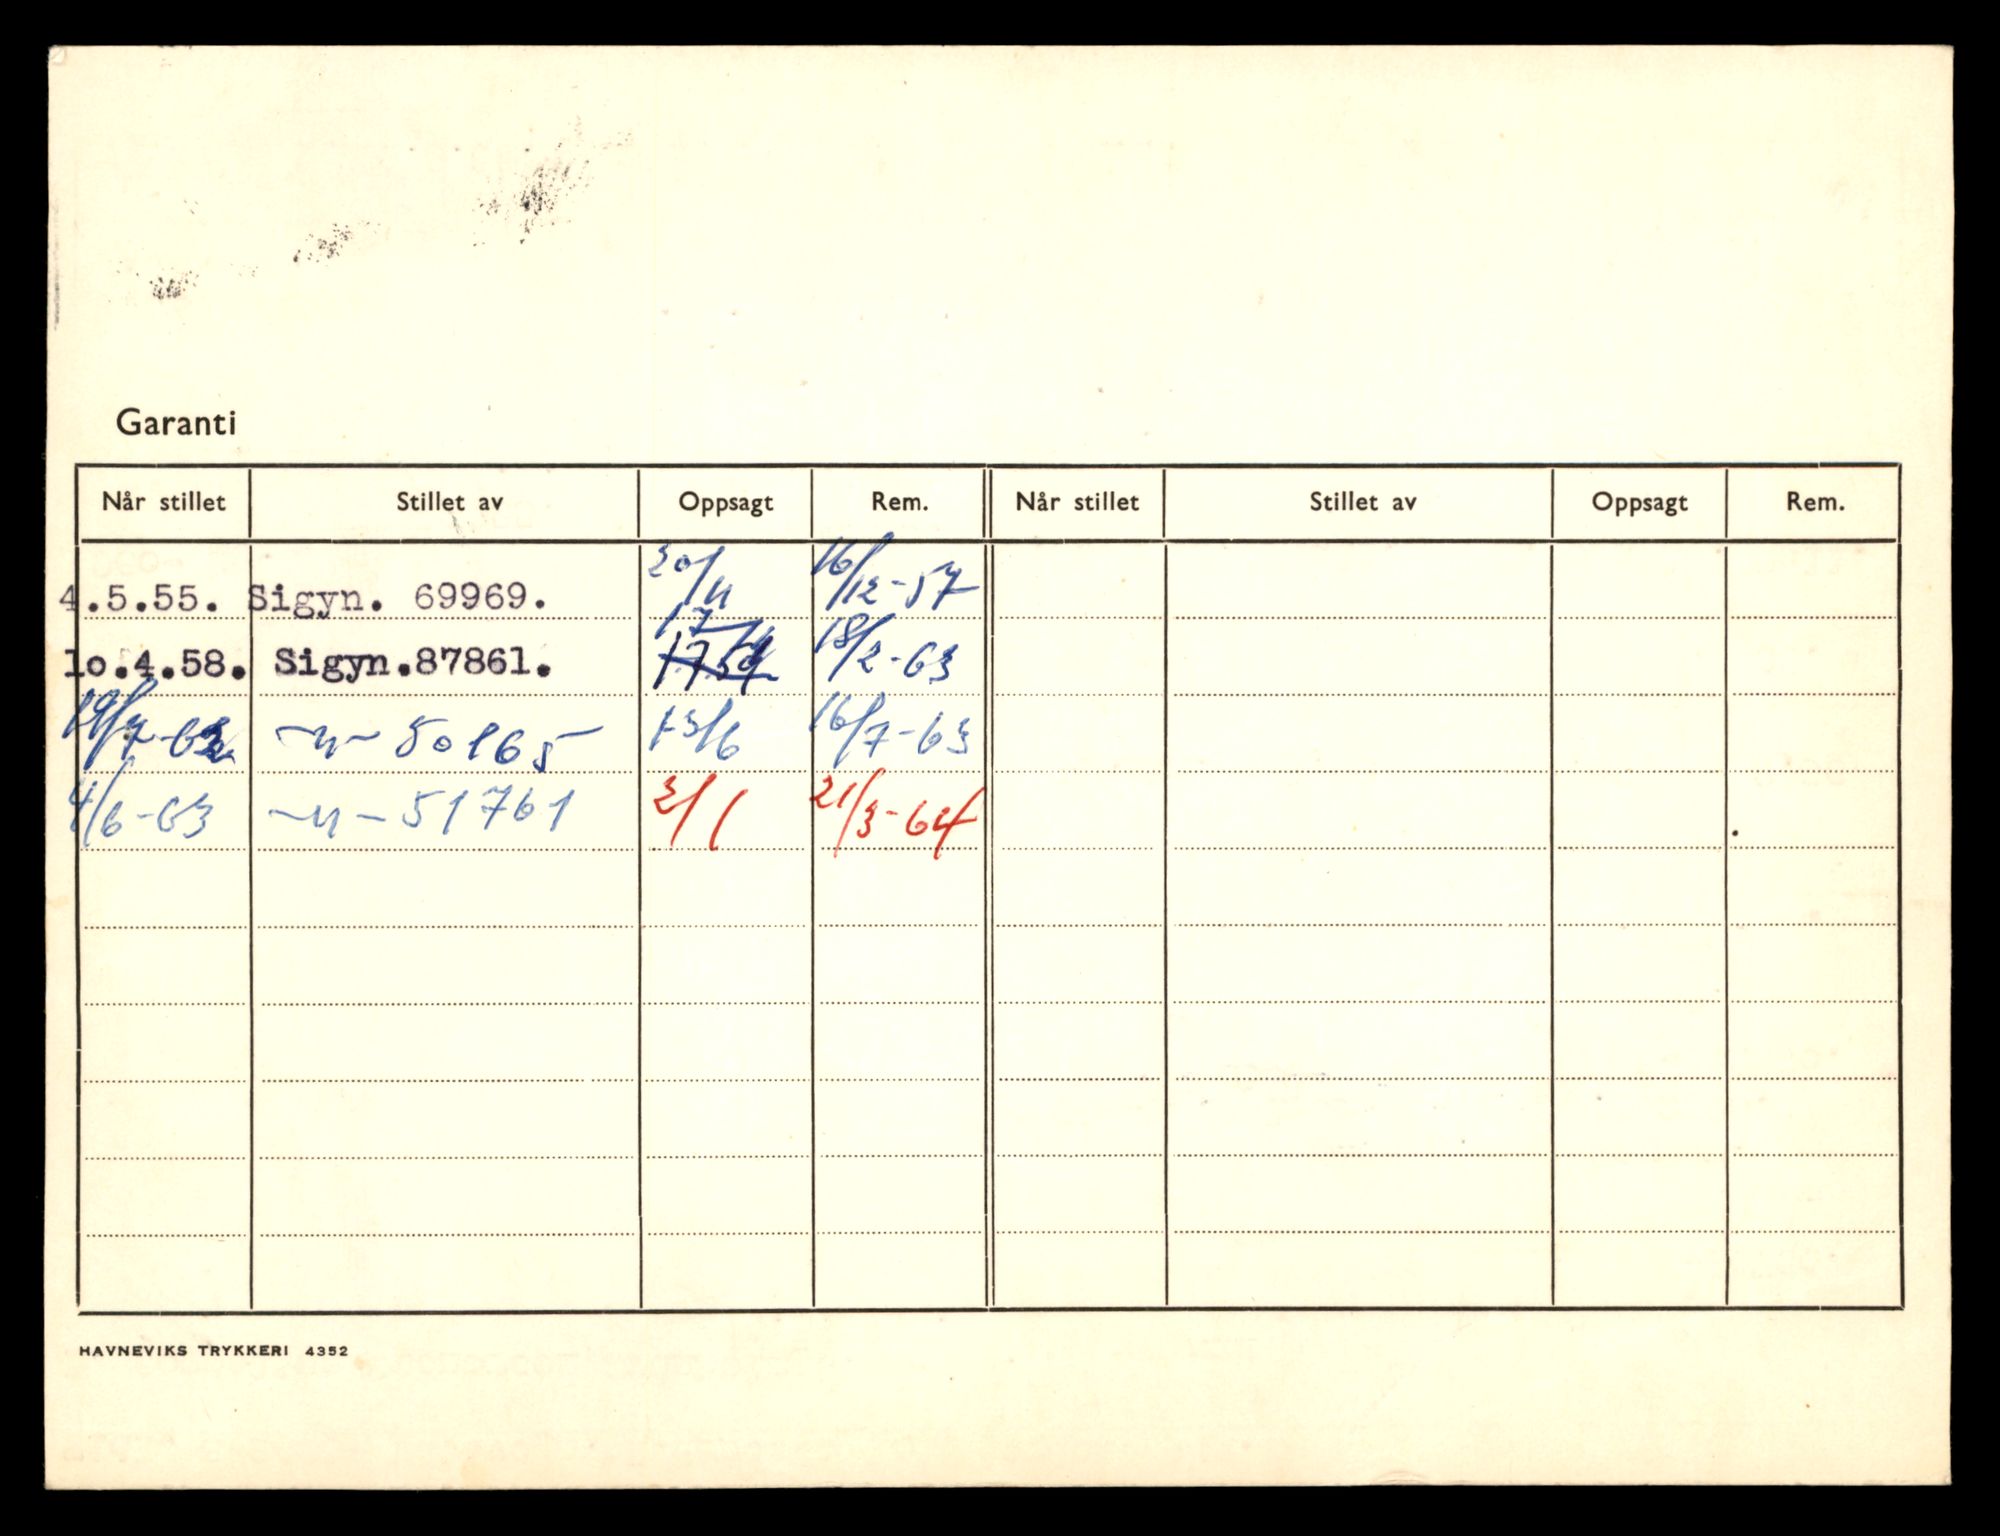 Garanti
Når stillet Stillet av Oppsagt Rem. Når stillet Stillet av Oppsagt Rem.
4.5.55. Sigyn. 69969. 20/11 16/12-57
lo.4.58. Sigyn.87861. 17/ 18/2-63
19/ -62 -"- 50165 13/6 16/7-63
4/6-63 -"- 51761 2/1 21/3-64
HAVNEVIKS TRYKKERI 4352